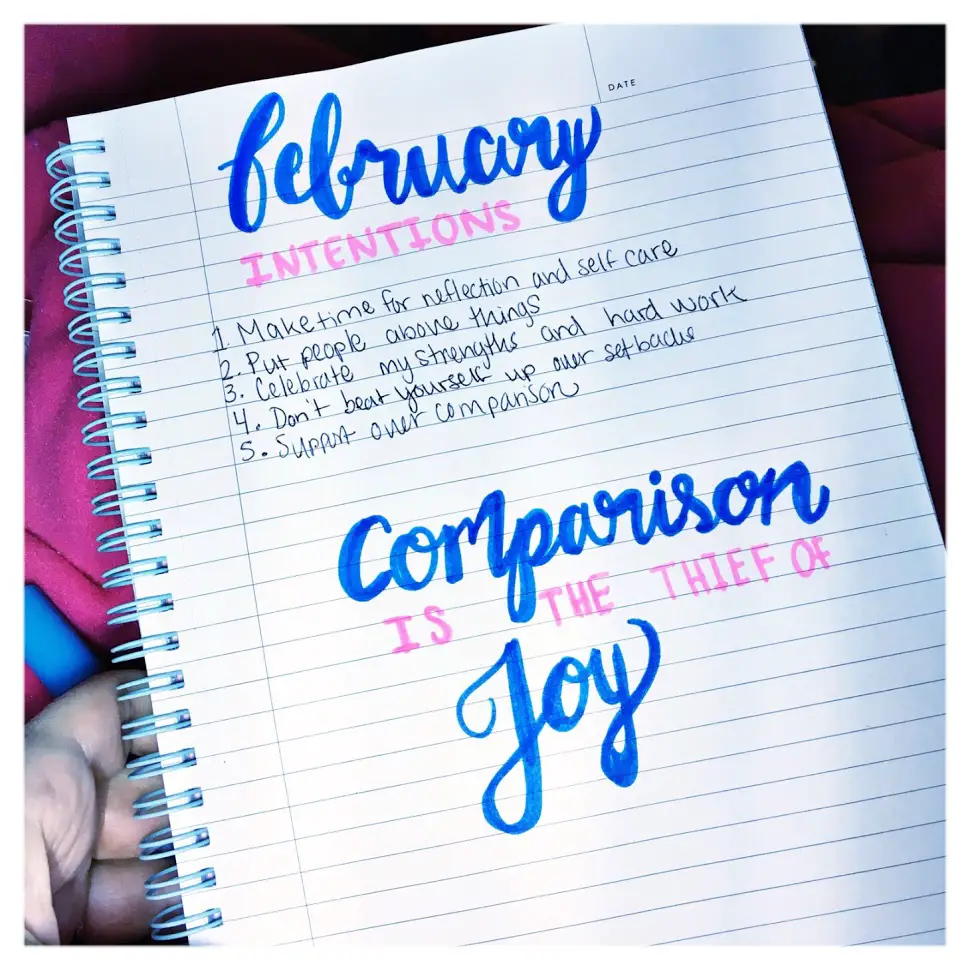 DATE
February
INTENTIONS
1. Make time for reflection and self care
2. Put people above things
3. Celebrate my strengths and hard work
4. Don't beat yourself up over setbacks
5. Support over comparison
Comparison
IS THE THIEF OF
Joy